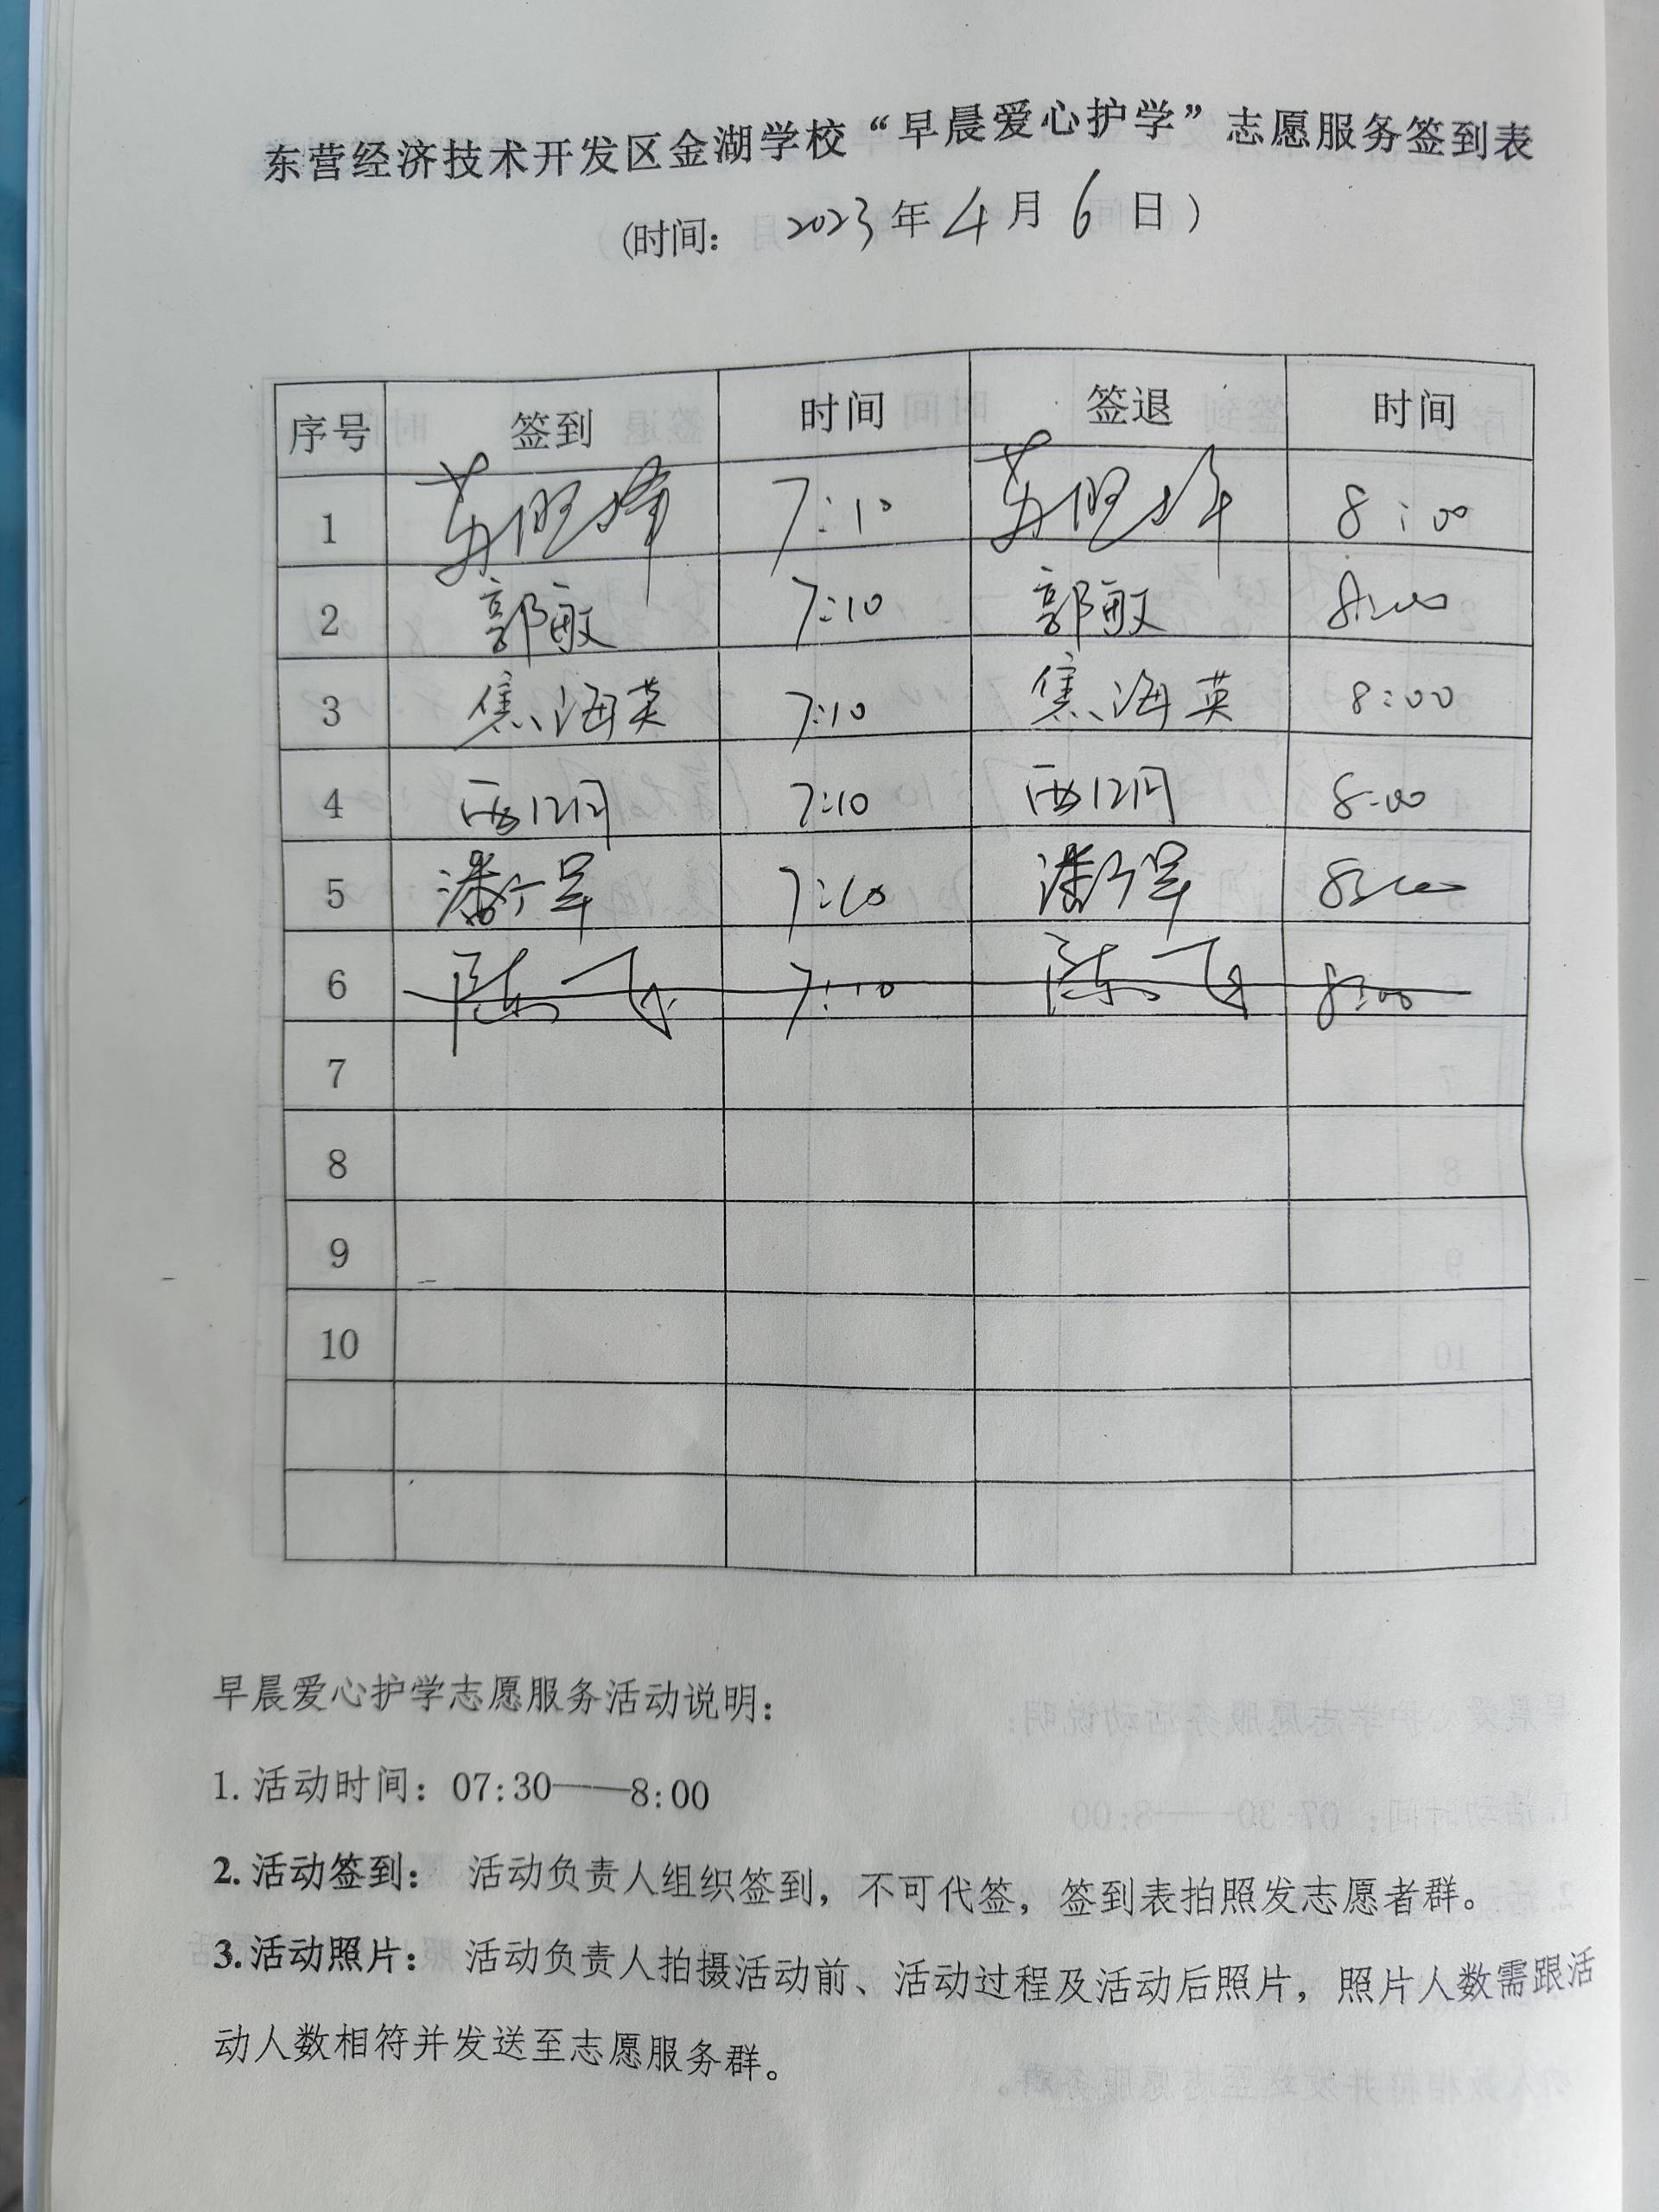 东营经济技术开发区金湖学校“早晨爱心护学”志愿服务签到表
(时间： 2023年4月6日)
序号 签到 时间 签退 时间
1 7:10 8:00
2 郭敏 7:10 郭敏 8:00
3 焦海英 7:10 焦海英 8:00
4 7:10 8:00
5 潘军 7:10 潘军 8:00
6 陈飞 7:10 陈飞 8:00
7
8
9
10
早晨爱心护学志愿服务活动说明：
1. 活动时间：07:30——8:00
2. 活动签到： 活动负责人组织签到，不可代签，签到表拍照发志愿者群。
3. 活动照片： 活动负责人拍摄活动前、活动过程及活动后照片，照片人数需跟活
动人数相符并发送至志愿服务群。